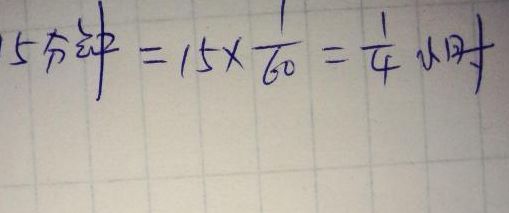 15分钟 = 15 × 1/60 = 1/4 小时